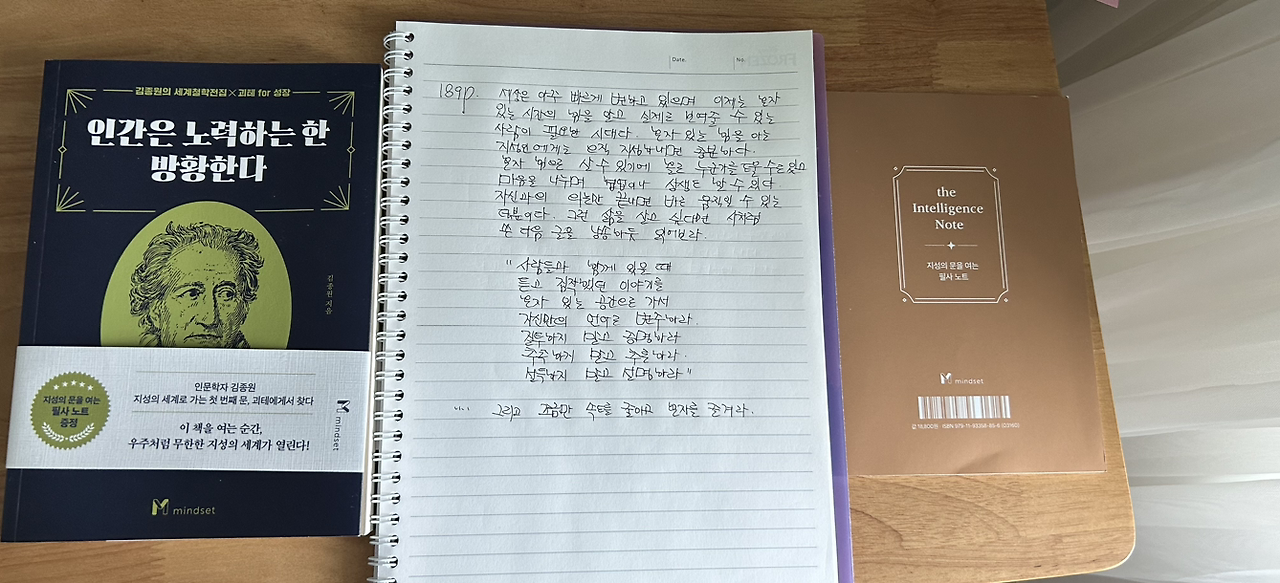 김종원의 세계철학전집×괴테 for 성장
인간은 노력하는 한
방황한다
김종원 지음
지성의 문을 여는
필사 노트
증정
인문학자 김종원
지성의 세계로 가는 첫 번째 문, 괴테에게서 찾다
이 책을 여는 순간,
우주처럼 무한한 지성의 세계가 열린다!
mindset
mindset
Date.
No.
189p. 세상은 아주 빠르게 변하고 있으며 이제는 혼자
있는 시간의 힘을 알고 실제로 보여줄 수 있는
사람이 필요한 시대다. 혼자 있는 힘을 아는
지성인에게는 오직 자신 하나면 충분하다.
혼자 힘으로 살 수 있기에 홀로 누군가를 도울 수도 있고
마음을 나누며 얼마나 상생도 할 수 있다
자신과의 이끌면 바로 움직일 수 있는
덕분이다. 그런 삶을 살고 싶다면 사색
쓴 다음 글을 낭송하듯 읽어보라.
"사람들과 함께 있을 때
듣고 짐작했던 이야기를
혼자 있는 공간으로 가서
자신만의 언어로 변주하라.
질투하지 말고 증명하라
추측하지 말고 추출하라.
설득하지 말고 설명하라"
그리고 조금만 속도를 줄이고 혼자를 즐겨라.
the
Intelligence
Note
지성의 문을 여는
필사 노트
mindset
값 16,800원 ISBN 979-11-93358-85-6 (03160)